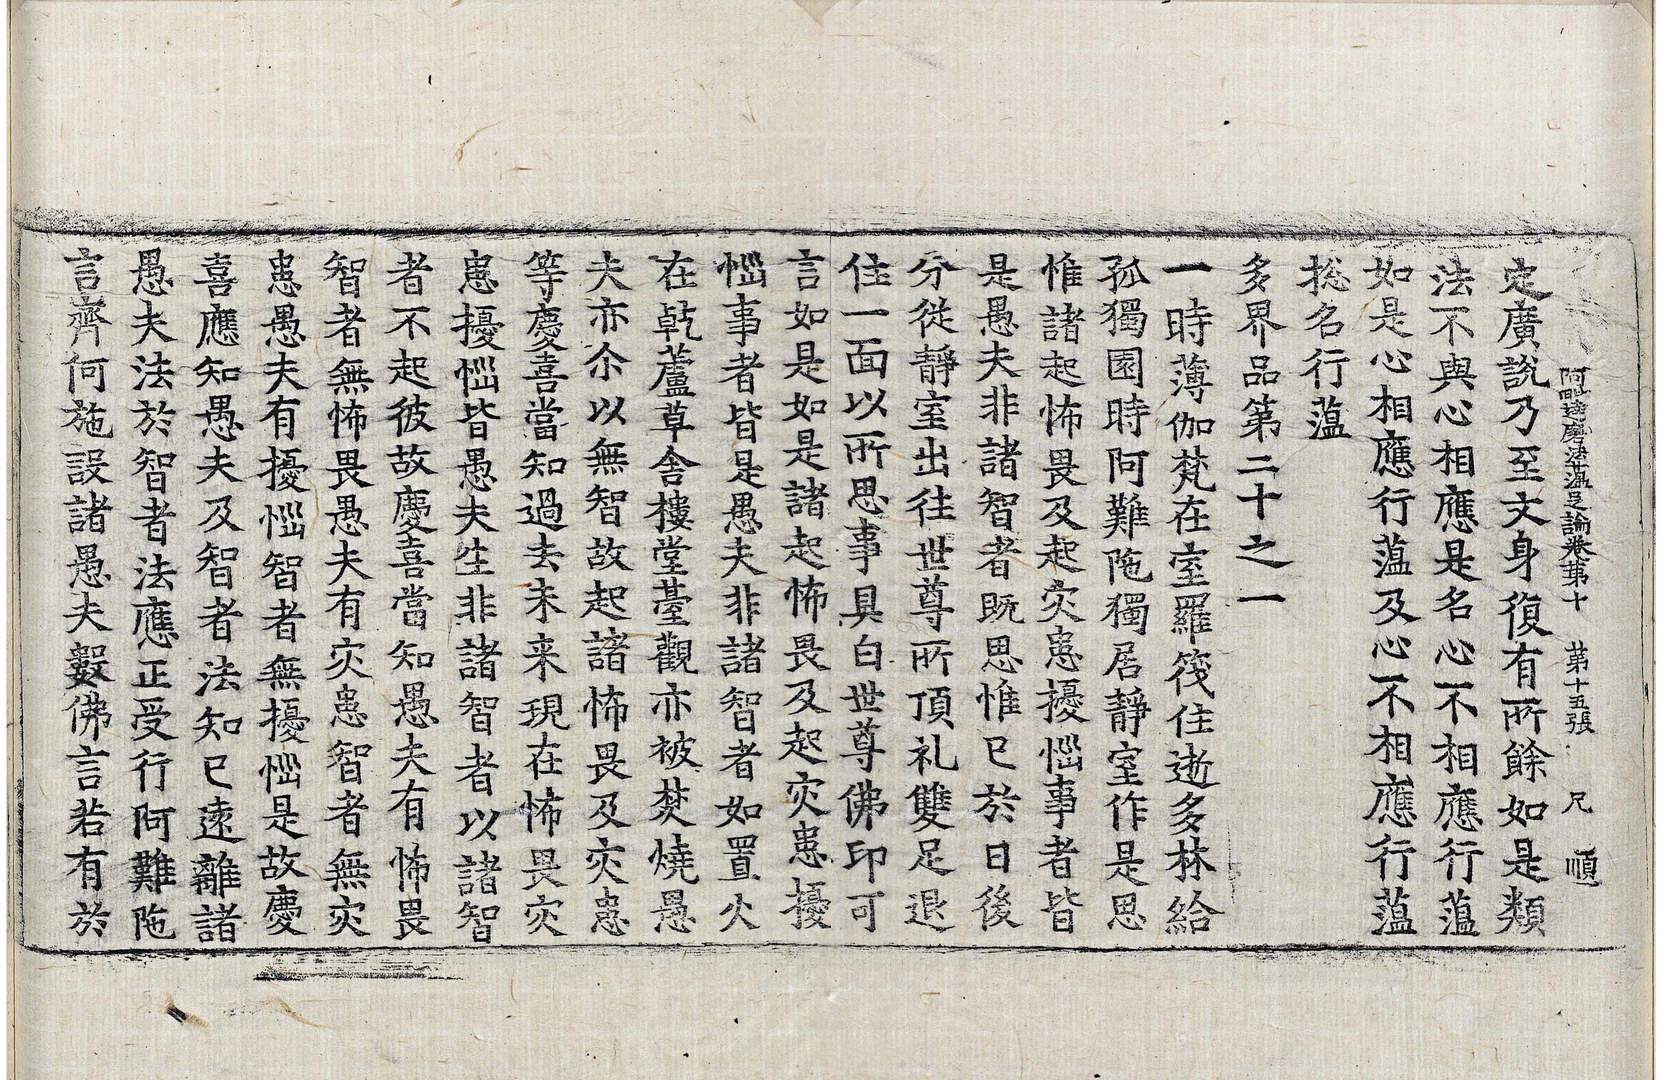 阿毗達磨法蘊足論卷第十 第十五張 尺 順
定廣說乃至文身復有所餘如是類
法不與心相應是名心不相應行蘊
如是心相應行蘊及心不相應行蘊
捴名行蘊
多界品第二十之一
一時薄伽梵在室羅筏住逝多林給
孤獨園時阿難陁獨居靜室作是思
惟諸起怖畏及起灾患擾惱事者皆
是愚夫非諸智者旣思惟已於日後
分從靜室出往世尊所頂礼雙足退
住一面以所思事具白世尊佛印可
言如是如是諸起怖畏及起灾患擾
惱事者皆是愚夫非諸智者如置火
在乾蘆草舍樓堂臺觀亦被焚燒愚
夫亦尒以無智故起諸怖畏及灾患
等慶喜當知過去未来現在怖畏灾
患擾惱皆愚夫生非諸智者以諸智
者不起彼故慶喜當知愚夫有怖畏
智者無怖畏愚夫有灾患智者無灾
患愚夫有擾惱智者無擾惱是故慶
喜應知愚夫及智者法知已遠離諸
愚夫法於智者法應正受行阿難陁
言齊何施設諸愚夫數佛言若有於